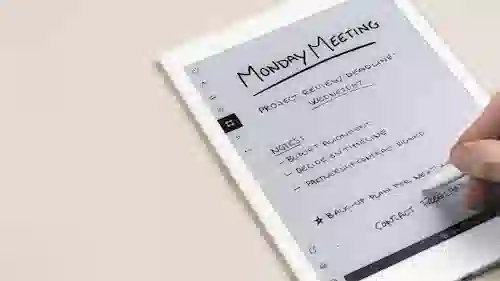 MONDAY MEETING
PROJECT REVIEW DEADLINE:
WEDNESDAY
NOTES:
- BUDGET ALIGNMENT
- DECIDE ON TIMELINE
- BOARD
★ BACK-UP PLAN FOR
CONTACT